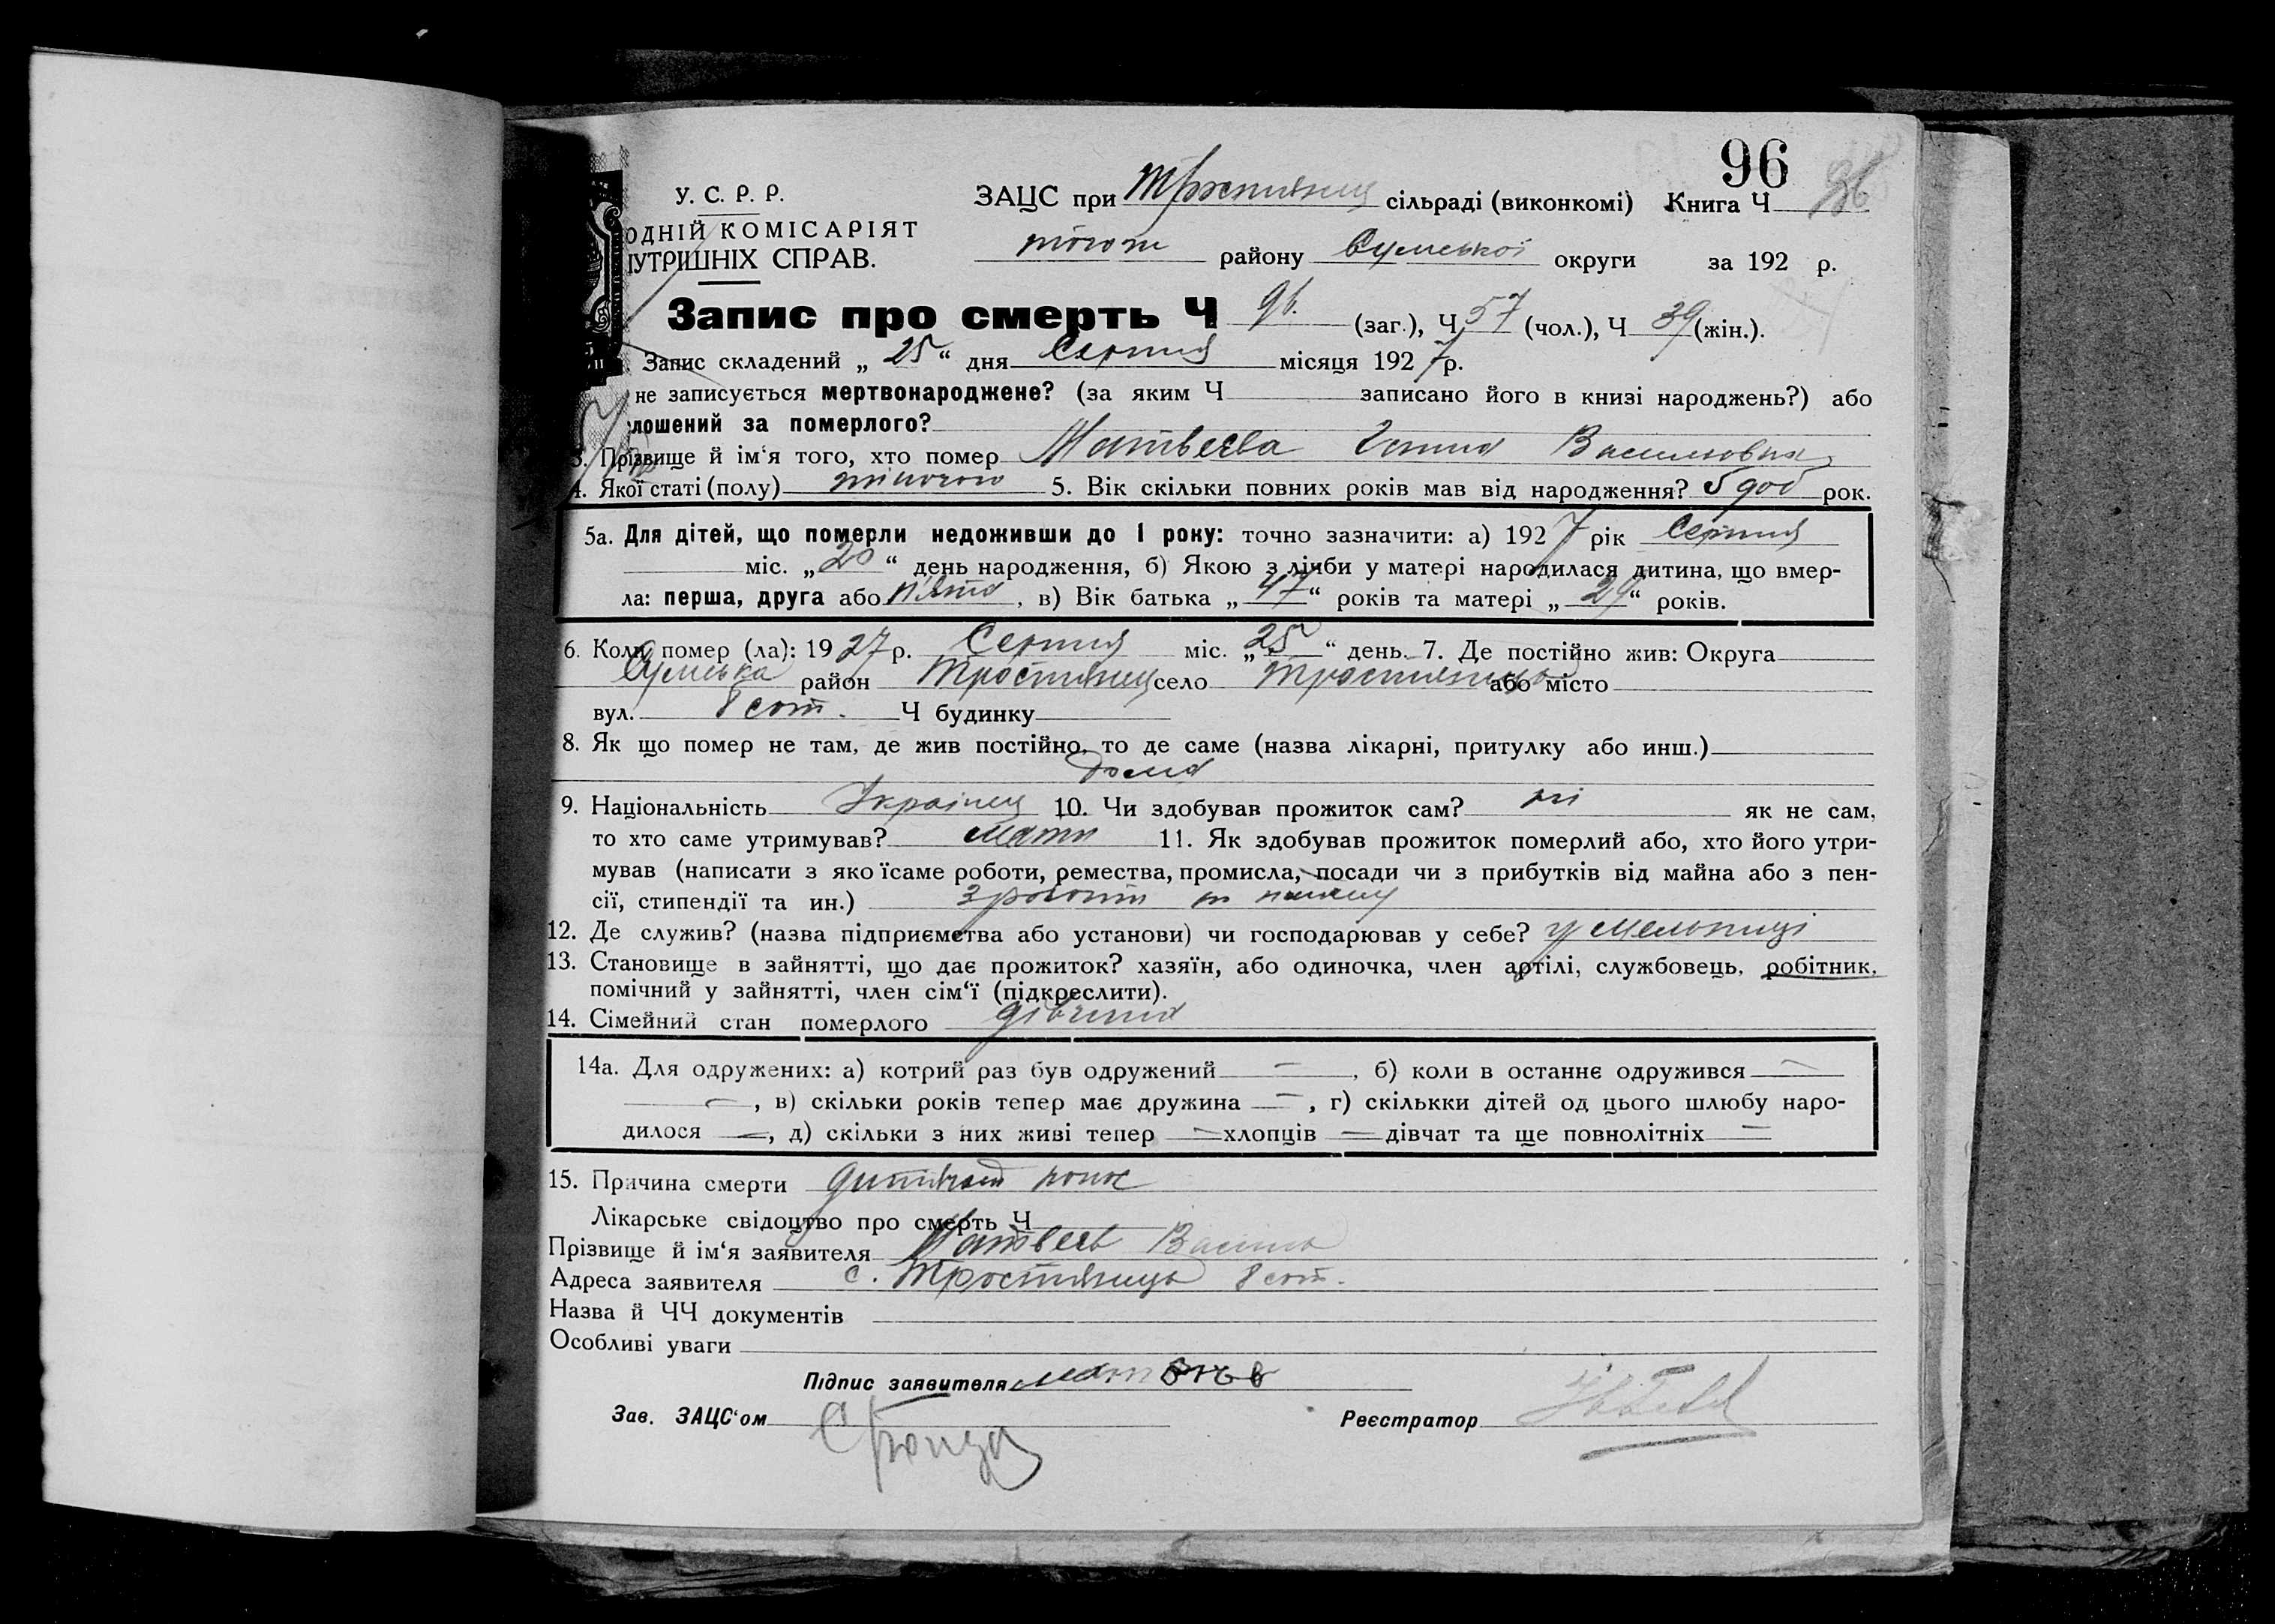 96
У. С. Р. Р. ЗАЦС при Тростянец сільраді (виконкомі) Книга Ч 96
ОДНІЙ КОМІСАРІЯТ
УТРІШНІХ СПРАВ. району Сумської округи за 192 р.
Запис про смерть Ч 96. (заг.), Ч 57 (чол.), Ч 39 (жін.).
Запис складений „ 25 “ дня Серпня місяця 1927 р.
не записується мертвонароджене? (за яким Ч записано його в книзі народжень?) або
лошений за померлого?
3. Прізвище й ім‘я того, хто помер Матвеєва Ганна Василювна
4. Якої статі (полу) жіночого 5. Вік скільки повних років мав від народження? 5 доб рок.
5а. Для дітей, що померли недоживши до 1 року: точно зазначити: а) 1927 рік Серпня
міс. „ 20 “ день народження, б) Якою з лічби у матері народилася дитина, що вмер-
ла: перша, друга або п'ята, в) Вік батька „ 47 “ років та матері „ 29 “ років.
6. Коли помер (ла): 1927 р. Серпня міс. „ 25 “ день. 7. Де постійно жив: Округа
Сумська район Тростянец село Тростянець або місто
вул. 8 сот. Ч будинку
8. Як що помер не там, де жив постійно, то де саме (назва лікарні, притулку або инш.)
дома
9. Національність Українец 10. Чи здобував прожиток сам? ні як не сам,
то хто саме утримував? мати 11. Як здобував прожиток померлий або, хто його утри-
мував (написати з яко їсаме роботи, ремества, промисла, посади чи з прибутків від майна або з пен-
сії, стипендії та ин.) з роботи
12. Де служив? (назва підприємства або установи) чи господарював у себе? у мельниці
13. Становище в зайнятті, що дає прожиток? хазяїн, або одиночка, член артілі, службовець, робітник,
помічний у зайнятті, член сім‘ї (підкреслити).
14. Сімейний стан померлого дівчина
14а. Для одружених: а) котрий раз був одружений —, б) коли в останнє одружився —
—, в) скільки років тепер має дружина —, г) скількки дітей од цього шлюбу наро-
дилося —, д) скільки з них живі тепер — хлопців — дівчат та ще повнолітніх —
15. Причина смерти дитячий понос
Лікарське свідоцтво про смерть Ч
Прізвище й ім‘я заявителя Матвеєв Василь
Адреса заявителя с. Тростянець 8 сот.
Назва й ЧЧ документів
Особливі уваги
Підпис заявителя
Зав. ЗАЦС‘ом Реєстратор